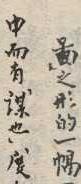 圖之形的一幅
中而有謀也度